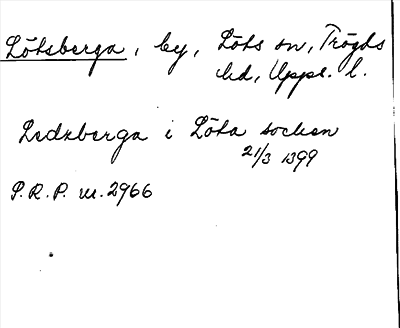 Lötsberga, by, Löts sn, Trögds
hd, Uppl. l.
Ledzberga i Löta socken
21/3 1399
P.R.P. nr. 2966